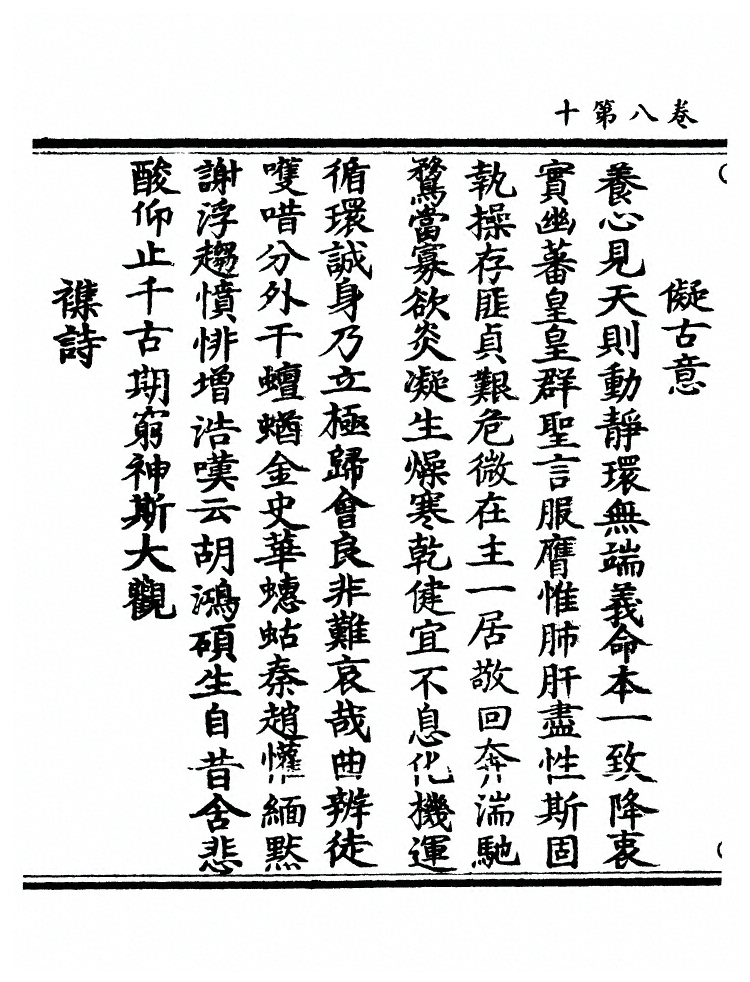 卷八第十
儗古意
養心見天則動靜環無端義命本一致降衷
實幽蕃皇皇群聖言服膺惟肺肝盡性斯固
執操存匪貞艱危微在主一居敬回奔湍馳
騖當寡欲炎凝生燥寒乾健宜不息化機運
循環誠身乃立極歸會良非難哀哉曲辨徒
嚄唶分外干蟺蝤金史華蟪蛄秦趙懽緬默
謝浮趨憤悱增浩嘆云胡鴻碩生自昔含悲
酸仰止千古期窮神斯大觀
襍詩